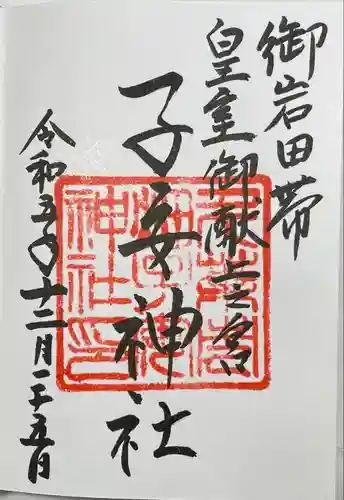 御岩田帯
皇室御献上之宮
子安神社
令和五年十二月二十五日